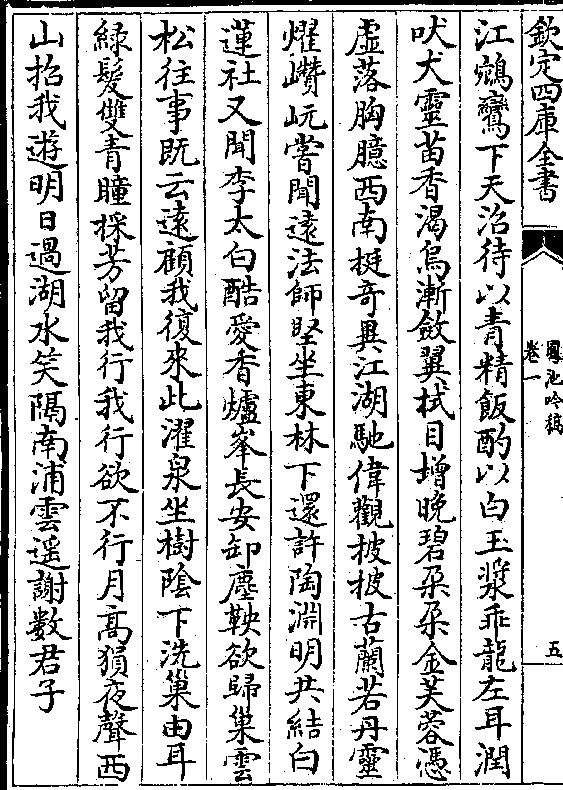 欽定四庫全書
鳳池吟稿
卷一
五
江鵁鸞下天沼待以青精飯酌以白玉漿乖龍左耳潤
吠犬靈苗香渴烏漸斂翼拭目增晚碧朶朶金芙蓉憑
虛落胸臆西南挺奇異江湖馳偉觀披披古蘭若丹靈
燿巑岏嘗聞遠法師堅坐東林下還許陶淵明共結白
蓮社又聞李太白酷愛香爐峯長安卸塵鞅欲歸巢雲
松往事既云遠顧我復來此濯泉坐樹陰下洗巢由耳
綠髮雙青瞳採芳留我行我行欲不行月高猿夜聲西
山招我遊明日過湖水笑隔南浦雲遥謝數君子